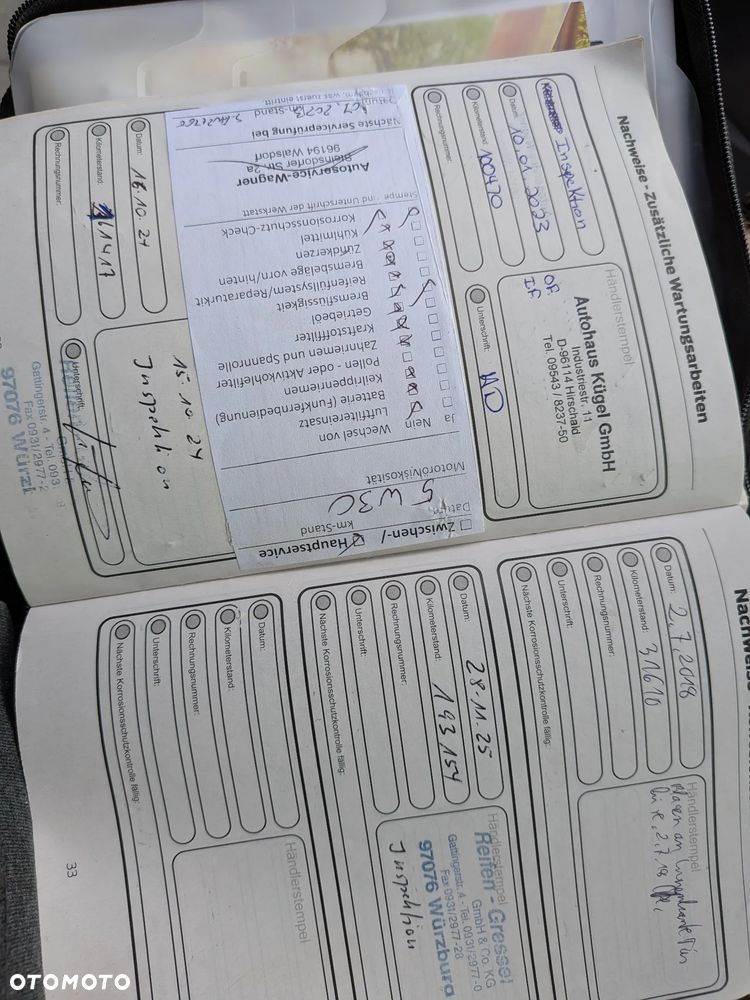 Nachweise - Zusätzliche Wartungsarbeiten
Inspektion
Datum: 10.01.2023
Kilometerstand: 100470
Rechnungsnummer:
Händlerstempel
Autohaus Kügel GmbH
Industriestr. 11
D-96114 Hirschaid
Tel. 09543 / 8237-50
Unterschrift:
Zwischen-/
Hauptservice
km-Stand
5W30
Motorölviskosität
Wechsel von
Ja
Nein
Luftfiltereinsatz
Batterie (Funkfernbedienung)
Keilrippenriemen
Pollen - oder Aktivkohlefilter
Zahnriemen und Spannrolle
Kraftstofffilter
Getriebeöl
Bremsflüssigkeit
Reifenfüllsystem/Reparaturkit
Bremsbeläge vorn/hinten
Zündkerzen
Kühlmittel
Korrosionsschutz-Check
und Unterschrift der Werkstatt
Autoservice-Wagner
Str. 2a
96194 Walsdorf
Nächste Serviceprüfung bei
km-Stand
was zuerst eintritt
Datum: 16.10.24
Kilometerstand:
Rechnungsnummer:
15.10.24
Inspektion
Unterschrift:
Gattingerstr. 4 - Tel. 093
Fax 0931/2977-2
97076 Würz
Datum: 2.7.2018
Kilometerstand: 31610
Rechnungsnummer:
Unterschrift:
Nächste Korrosionsschutzkontrolle fällig:
Händlerstempel
Datum: 28.11.25
Kilometerstand: 193154
Rechnungsnummer:
Unterschrift:
Nächste Korrosionsschutzkontrolle fällig:
Händlerstempel
Reifen - Gressel
GmbH & Co. KG
Gattingerstr. 4 - Tel. 0931/2977-0
Fax 0931/2977-28
97076 Würzburg
Inspektion
Datum:
Kilometerstand:
Rechnungsnummer:
Unterschrift:
Nächste Korrosionsschutzkontrolle fällig:
Händlerstempel
33
OTOMOTO